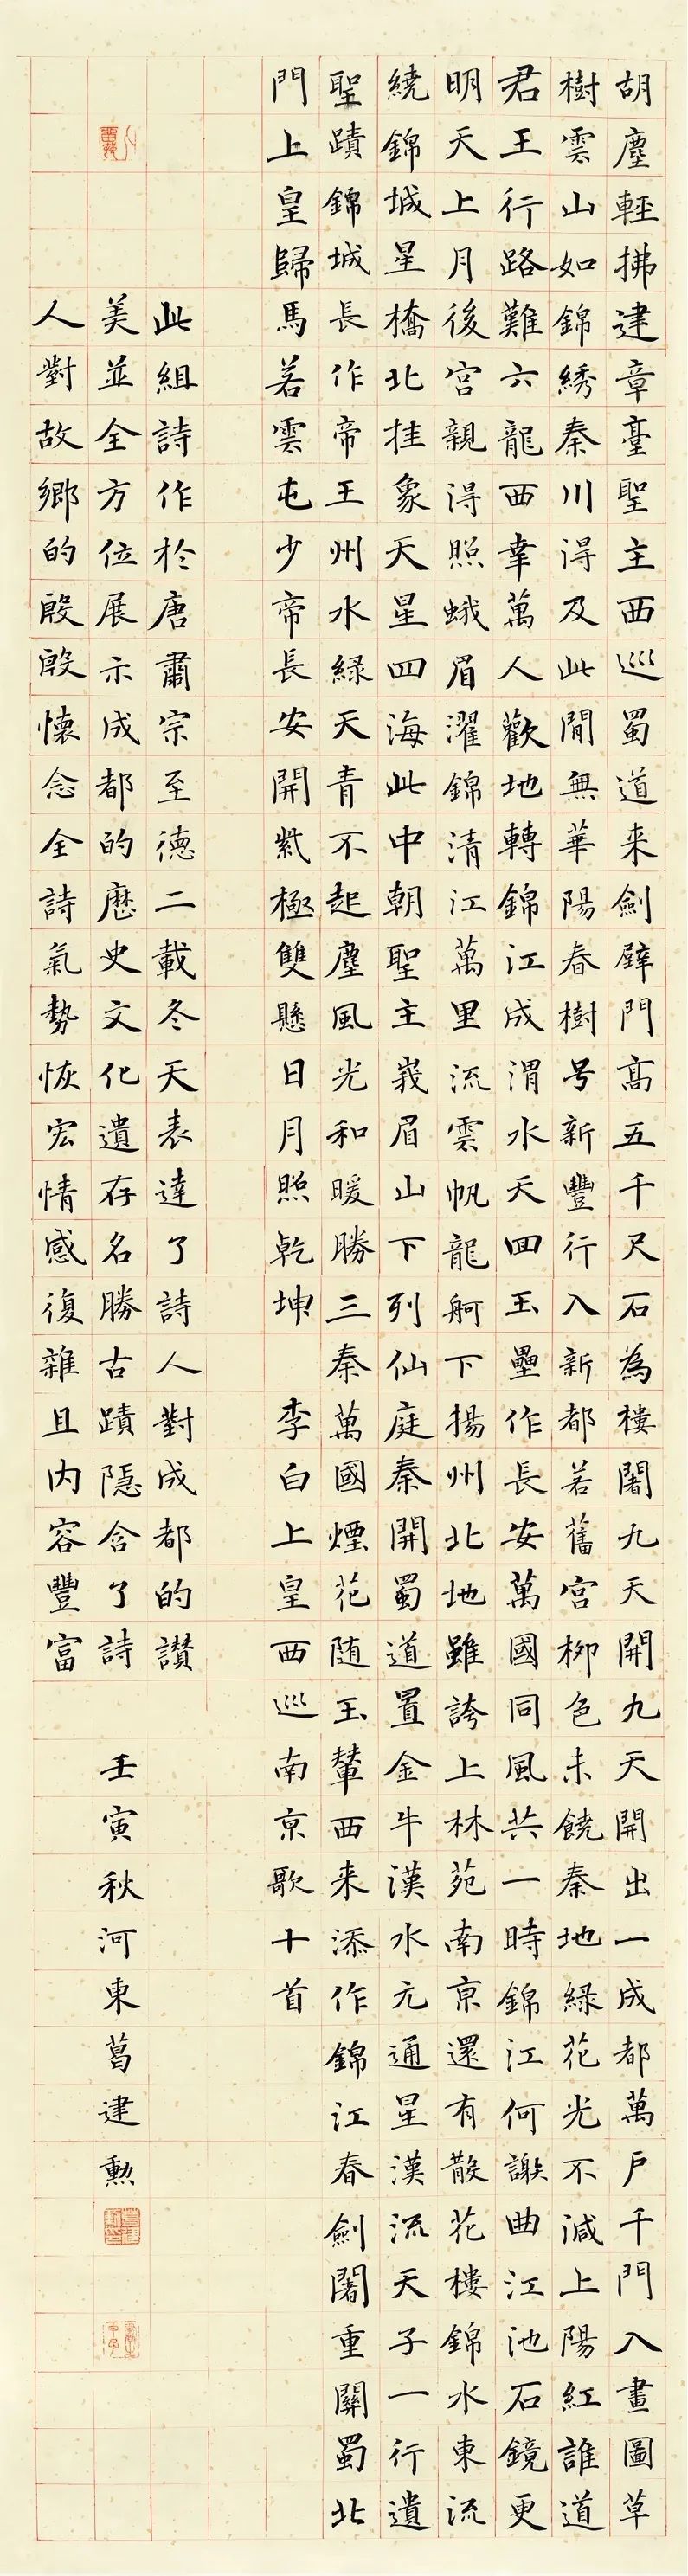 胡塵輕拂建章臺聖主西巡蜀道来劍壁門高五千尺石為樓閣九天開九天開出一成都萬户千門入畫圖草
樹雲山如錦綉秦川得及此間無華陽春樹号新豐行入新都若舊宮柳色未饒秦地緑花光不減上陽紅誰道
君王行路難六龍西幸萬人歡地轉錦江成渭水天囬玉壘作長安萬國同風共一時錦江何謝曲江池石鏡更
明天上月後宮親得照蛾眉濯錦清江萬里流雲帆龍舸下揚州北地雖誇上林苑南京還有散花樓錦水東流
繞錦城星橋北挂象天星四海此中朝聖主峩眉山下列仙庭秦開蜀道置金牛漢水元通星漢流天子一行遺
聖蹟錦城長作帝王州水緑天青不起塵風光和暖勝三秦萬國煙花随玉輦西来添作錦江春劍閣重關蜀北
門上皇歸馬若雲屯少帝長安開紫極雙懸日月照乾坤 李白上皇西巡南京歌十首
此組詩作於唐肅宗至德二載冬天表達了詩人對成都的讃
美並全方位展示成都的歷史文化遺存名勝古蹟隱含了詩
人對故鄉的殷殷懷念全詩氣勢恢宏情感復雜且内容豐富
壬寅秋河東葛建勲